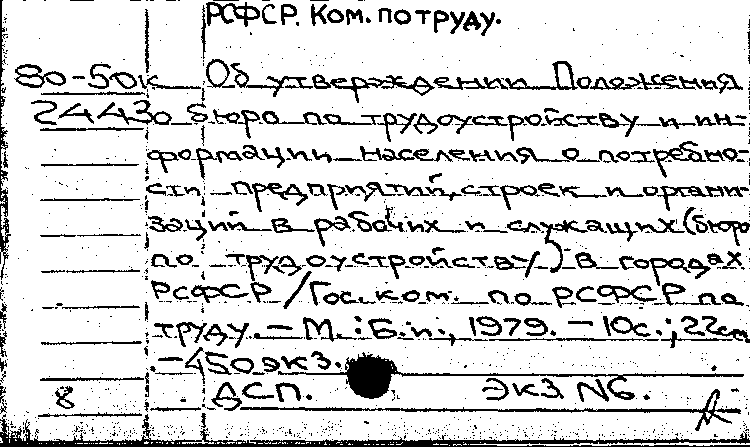 РСФСР. Ком. по труду.
80-50к Об утверждении Положения
2443 о бюро по трудоустройству и ин-
формации населения о потребно-
сти предприятий, строек и органи-
заций в рабочих и служащих (бюро
по трудоустройству) в городах
РСФСР / Гос. ком. по РСФСР па
труду. – М. : Б.и., 1979. – 10с.; 22см
. – 450 экз.
8 ДСП. ЭКЗ N6.